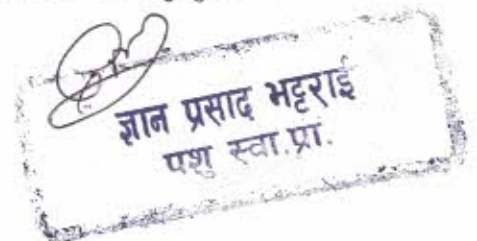 ज्ञान प्रसाद भट्टराई
पशु स्वा.प्रा.